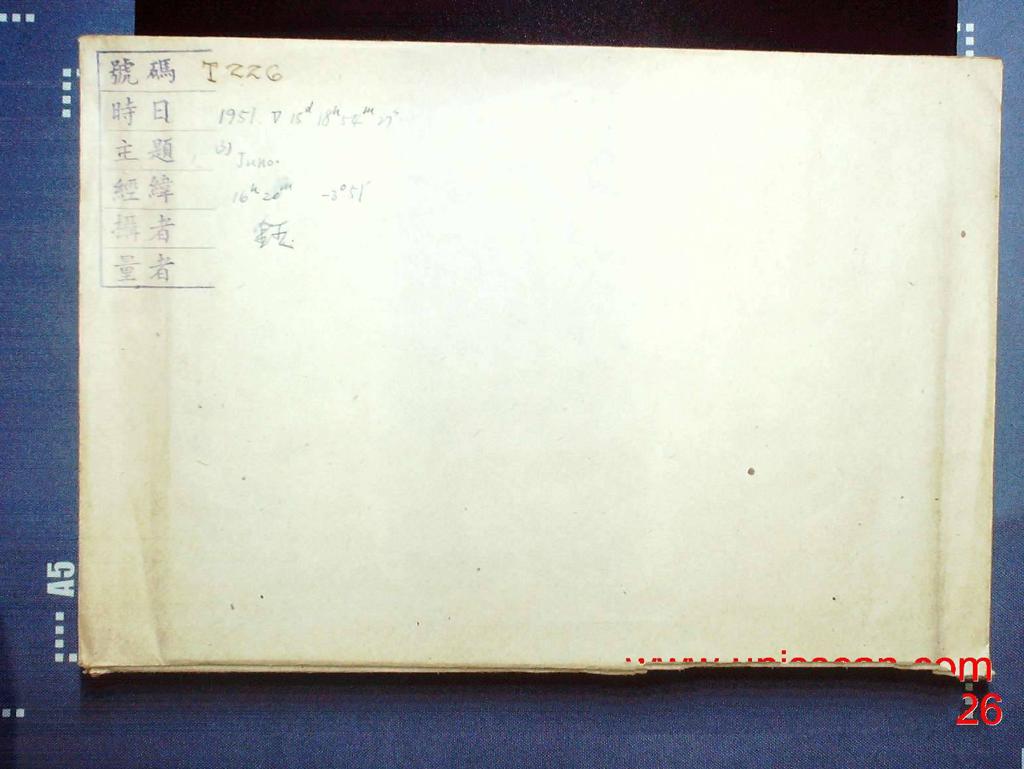 號碼 T226
時日 1951. V 15ᵈ 18ʰ54ᵐ
主題 (3) Juno.
經緯 16ʰ20ᵐ -3°51'
攝者
量者
A5
www.uniscan.com
26